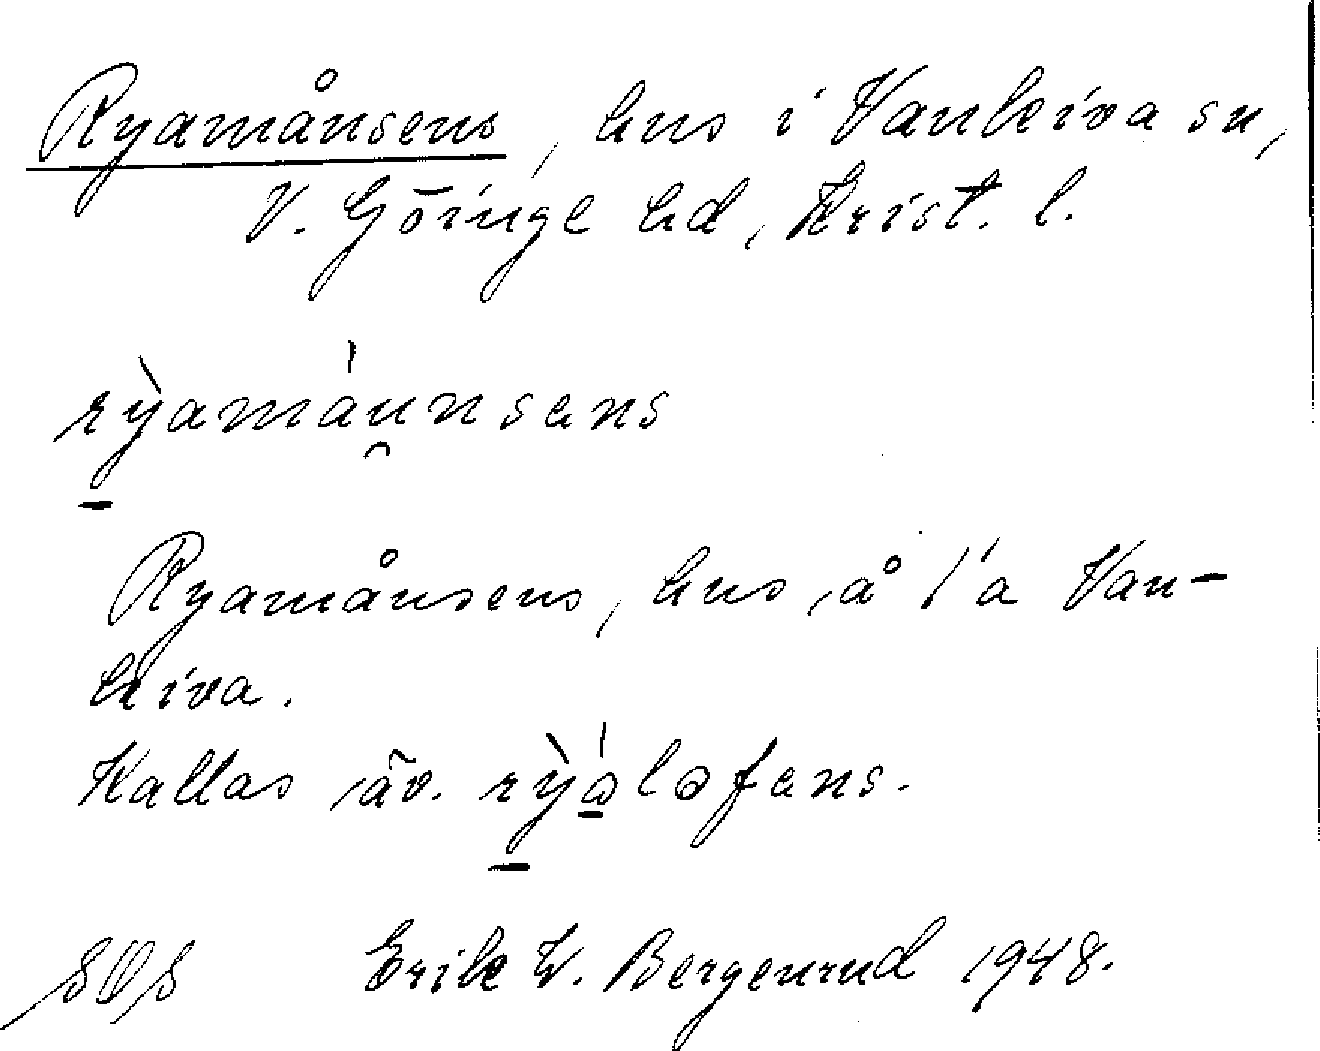 Ryamånsens, hus i Vankiva sn,
V. Göinge hd, Krist. l.
rỳamáu̯nsens
Ryamånsens, hus, å 1/a Van-
kiva.
Kallas äv. rỳáləfens.
SOS Erik W. Bergenrud 1948.